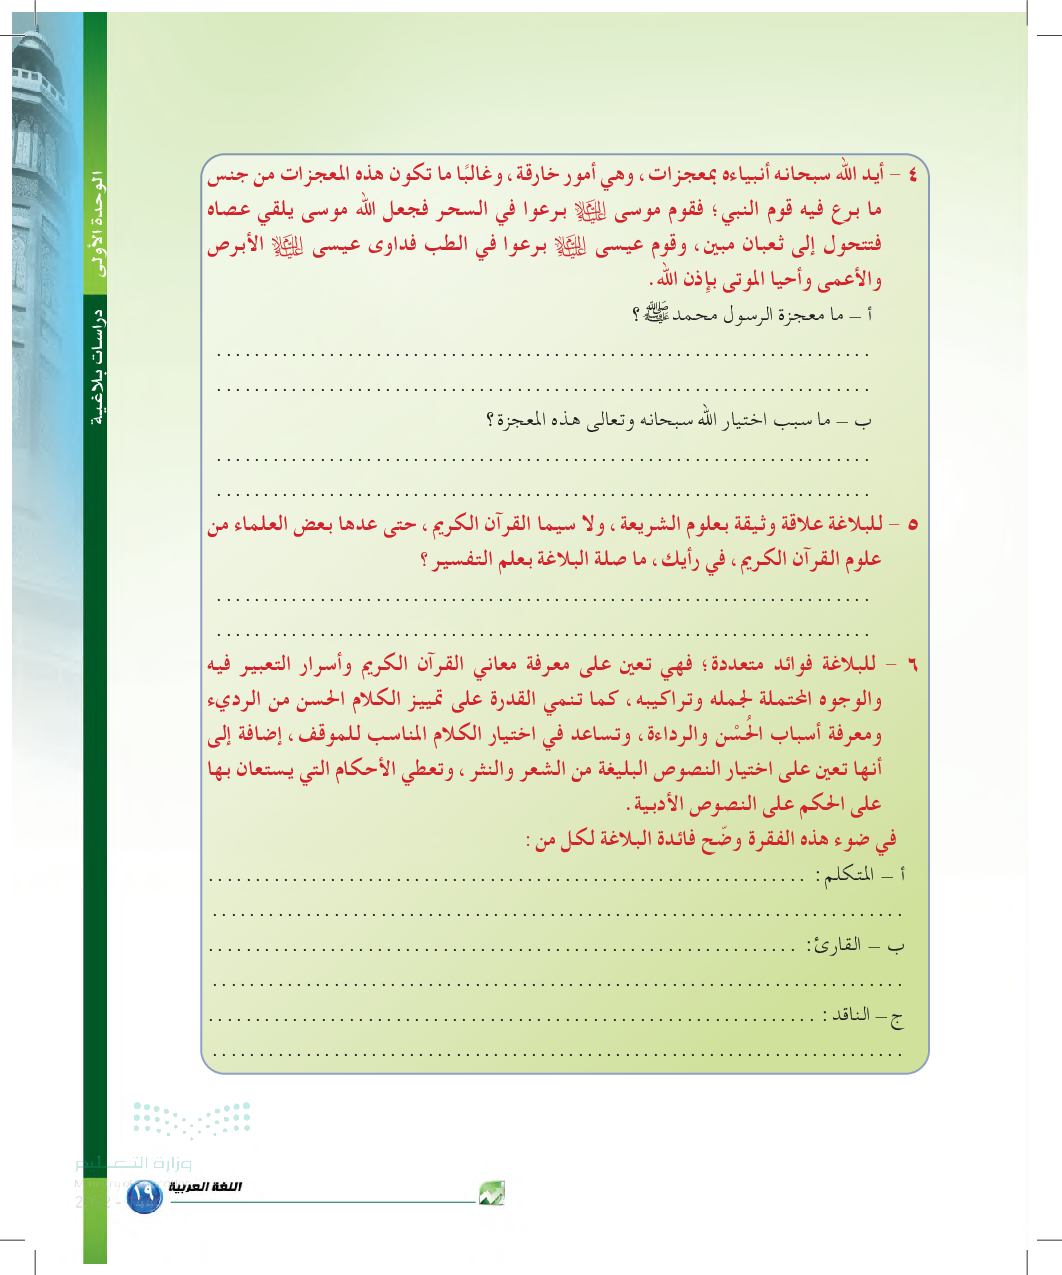 الوحدة الأولى
دراسات بلاغية
٤ – أيد الله سبحانه أنبياءه بمعجزات، وهي أمور خارقة، وغالبًا ما تكون هذه المعجزات من جنس
ما برع فيه قوم النبي؛ فقوم موسى عليه السلام برعوا في السحر فجعل الله موسى يلقي عصاه
فتتحول إلى ثعبان مبين، وقوم عيسى عليه السلام برعوا في الطب فداوى عيسى عليه السلام الأبرص
والأعمى وأحيا الموتى بإذن الله.
أ – ما معجزة الرسول محمد ﷺ؟
ب – ما سبب اختيار الله سبحانه وتعالى هذه المعجزة؟
٥ – للبلاغة علاقة وثيقة بعلوم الشريعة، ولا سيما القرآن الكريم، حتى عدها بعض العلماء من
علوم القرآن الكريم، في رأيك، ما صلة البلاغة بعلم التفسير؟
٦ – للبلاغة فوائد متعددة؛ فهي تعين على معرفة معاني القرآن الكريم وأسرار التعبير فيه
والوجوه المحتملة لجمله وتراكيبه، كما تنمي القدرة على تمييز الكلام الحسن من الرديء
ومعرفة أسباب الحُسْن والرداءة، وتساعد في اختيار الكلام المناسب للموقف، إضافة إلى
أنها تعين على اختيار النصوص البليغة من الشعر والنثر، وتعطي الأحكام التي يستعان بها
على الحكم على النصوص الأدبية.
في ضوء هذه الفقرة وضّح فائدة البلاغة لكل من:
أ – المتكلم:
ب – القارئ:
ج – الناقد:
وزارة التعليم
١٩
اللغة العربية